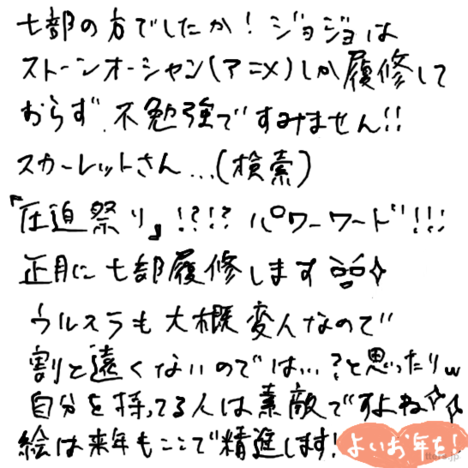 七部の方でしたか！ジョジョは
ストーンオーシャン(アニメ)しか履修して
おらず、不勉強ですみません!!
スカーレットさん...(検索)
『圧迫祭り』!?!? パワーワード!!!
正月に七部履修します
ウルスラも大概変人なので
割と遠くないのでは…？と思ったりw
自分を持ってる人は素敵ですよね
絵は来年もここで精進します！
よいお年を！